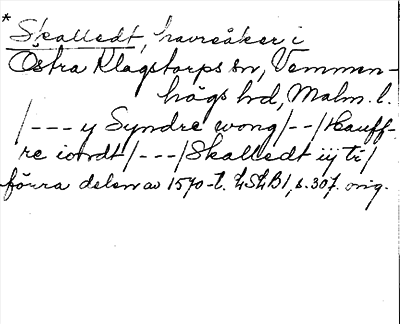 * Skalledt, havreåker i
Östra Klagstorps sn, Vemmen-
högs hd, Malm. l.
/--- y Syndre wong /--/ Hauff-
re iordt /---/ Skalledt iij ti/
förra delen av 1570-t. LSLB1, s. 307. orig.